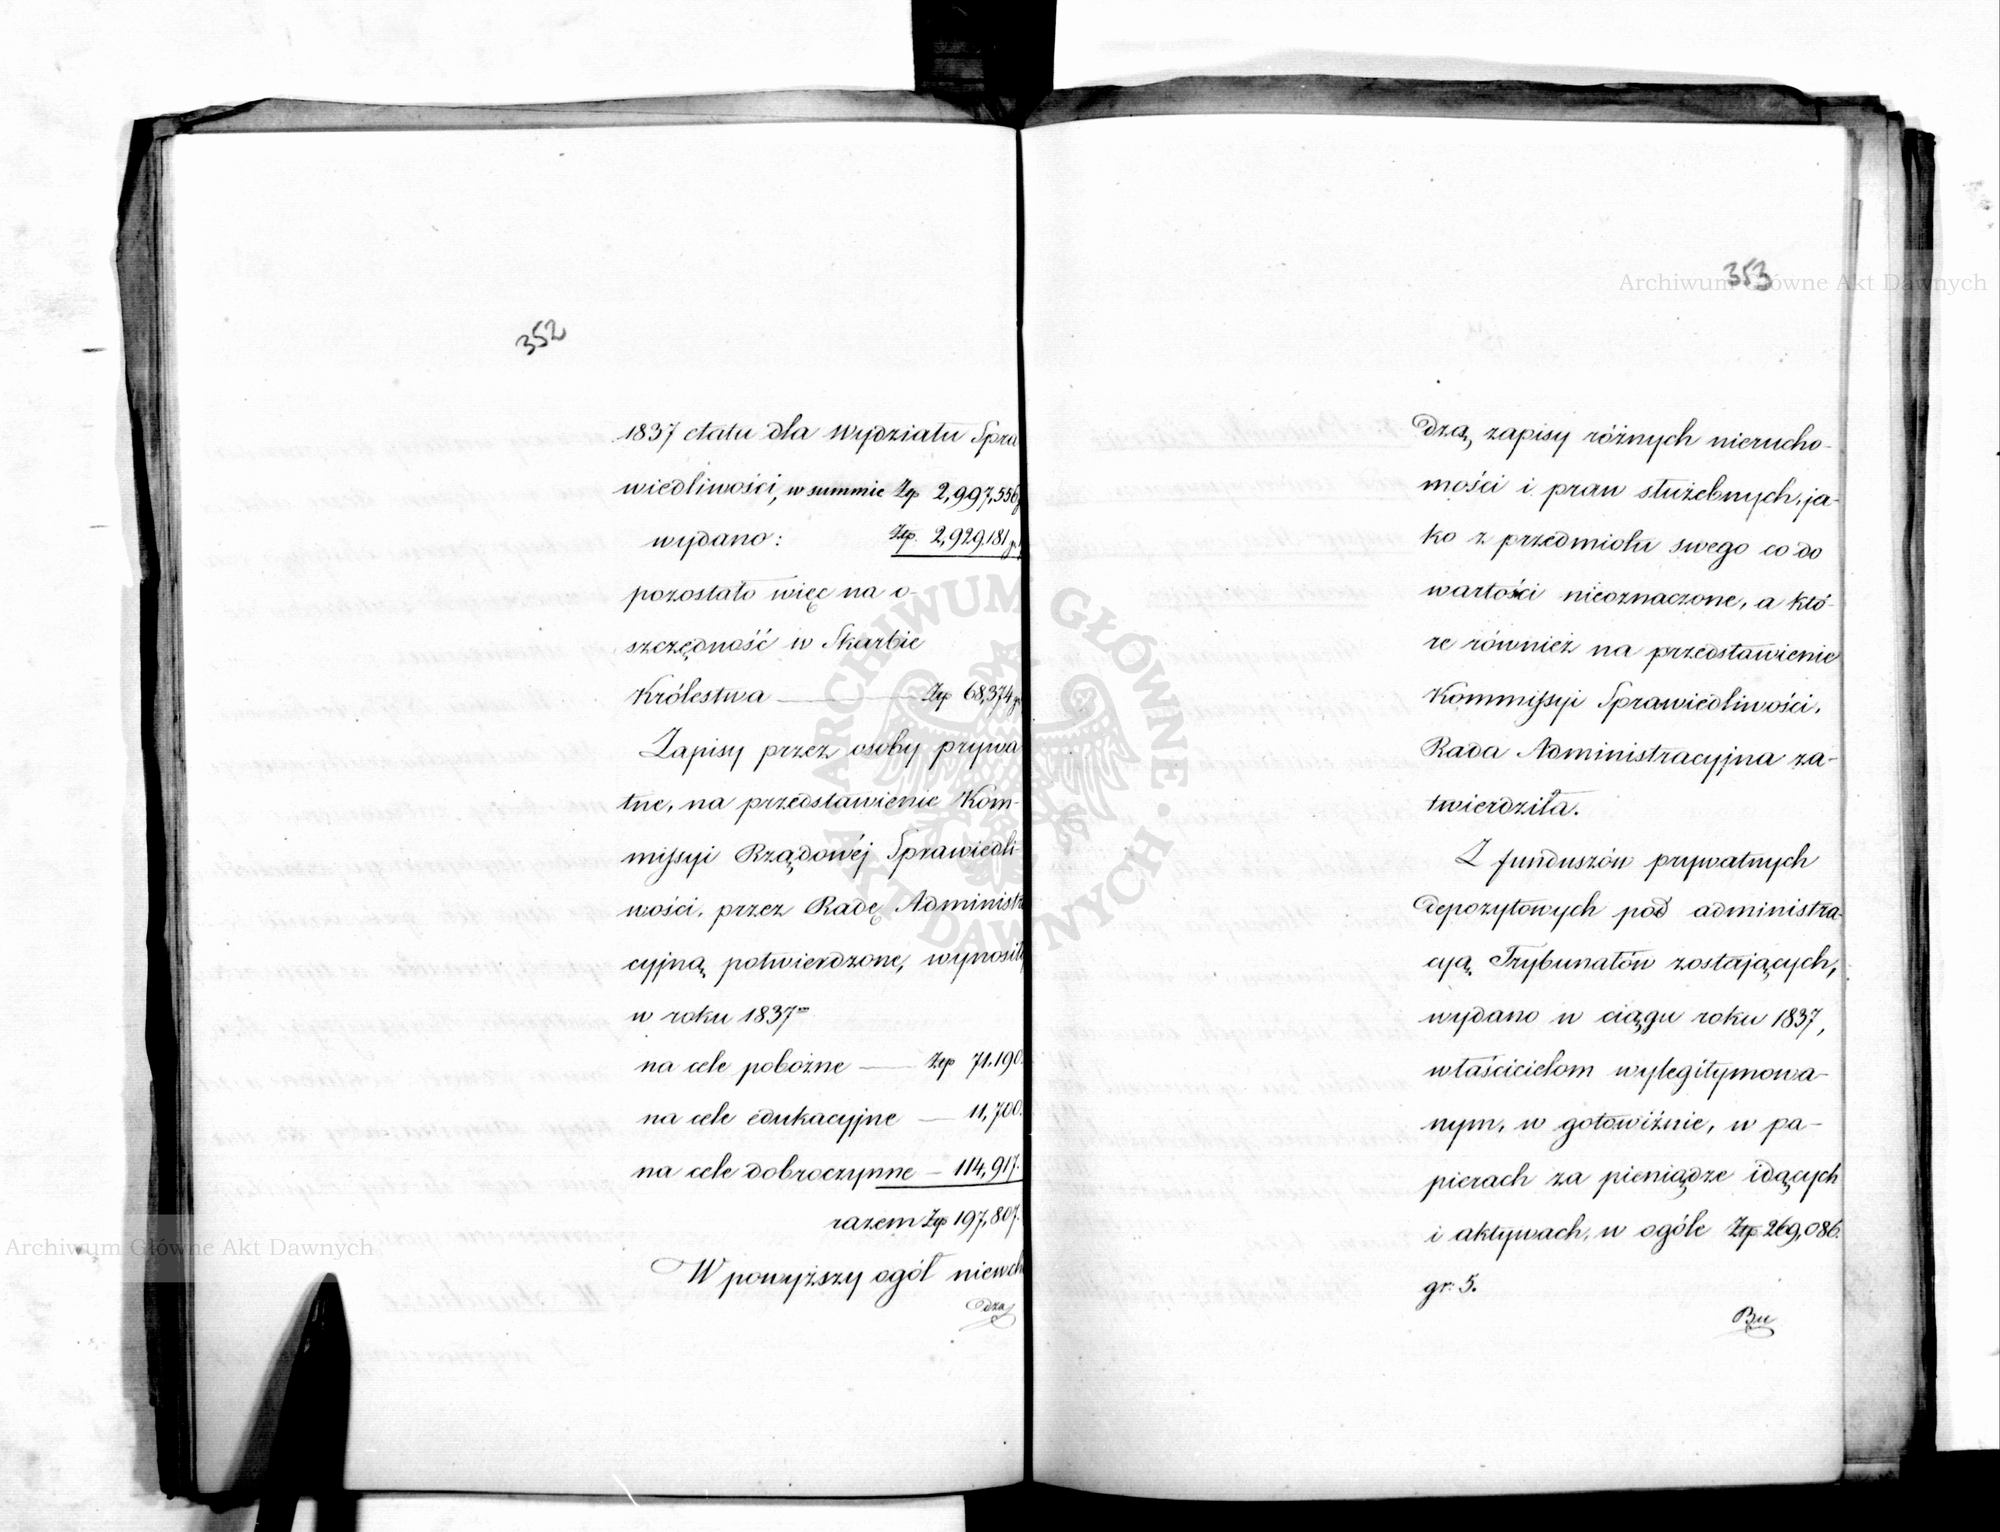 352
1837 etatu dla Wydziału Spra
wiedliwości, w summie Złp 2,997,556
wydano: Złp. 2,929,181
pozostało więc na o-
szczędność w Skarbie
Królestwa — Złp 68,374
Zapisy przez osoby prywa
tne, na przedstawienie Kom-
missyi Rządowéj Sprawiedli-
wości, przez Radę Administr
cyjną potwierdzone, wynosiły
w roku 1837m
na cele pobożne — Złp 71,190.
na cele edukacyjne — 11,700.
na cele dobroczynne — 114,917.
razem Złp 197,807.
W powyższy ogół niewcho
dzą
353
dzą, zapisy różnych nierucho-
mości i praw służebnych, ja-
ko z przedmiotu swego co do
wartości nieoznaczone, a któ-
re również na przedstawienie
Kommissyi Sprawiedliwości,
Rada Administracyjna za-
twierdziła.
Z funduszów prywatnych
depozytowych pod administra-
cyą Trybunałów zostających,
wydano w ciągu roku 1837,
właścicielom wylegitymowa-
nym, w gotowiźnie, w pa-
pierach za pieniądze idących
i aktywach, w ogóle Złp 269,086.
gr: 5.
Bu
Archiwum Główne Akt Dawnych
Archiwum Główne Akt Dawnych
ARCHIWUM GŁÓWNE · AKT DAWNYCH ·